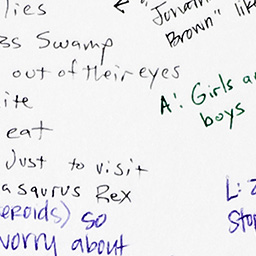 lies
Swamp
out of their eyes
ite
eat
Just to visit
a saurus Rex
eroids) so
worry about
"Jonath
Brown" like
A: Girls a
boys
L: 2
Stop